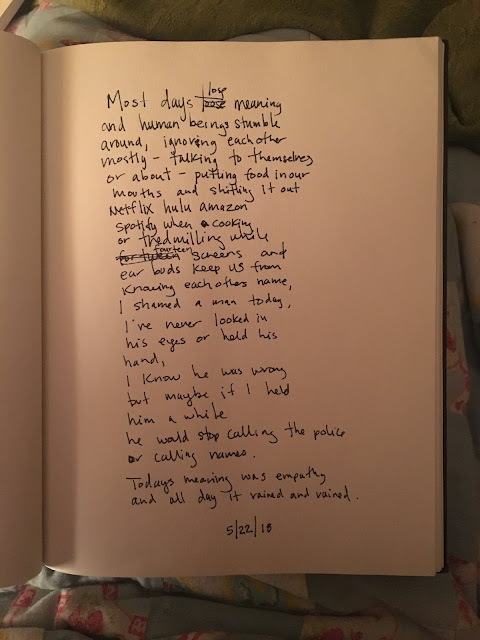 Most days lose meaning
and human beings stumble
around, ignoring eachother
mostly - talking to themselves
or about - putting food in our
mouths and shitting it out
Netflix hulu amazon
spotify when cooking
or tredmilling while
fourteen screens and
ear buds keep us from
knowing eachothers name,
I shamed a man today,
I've never looked in
his eyes or held his
hand,
I know he was wrong
but maybe if I held
him a while
he would stop calling the police
or calling names.
Todays meaning was empathy
and all day it rained and rained.
5/22/18